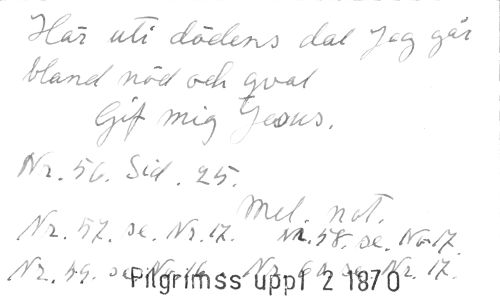 Här uti dödens dal Jag går
bland nöd och qval
Gif mig Jesus.
Nr. 56. Sid. 25.
Mel. not.
Nr. 57. se. Nr. 17. Nr. 58. se. No 17.
Nr. 59. se No 16. Nr. 60 se Nr. 17.
Pilgrimss uppf 2 1870